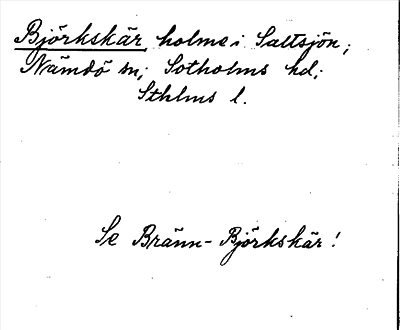 Björkskär holme i Saltsjön;
Nämdö sn; Sotholms hd;
Sthlms l.
Se Bränn-Björkskär!